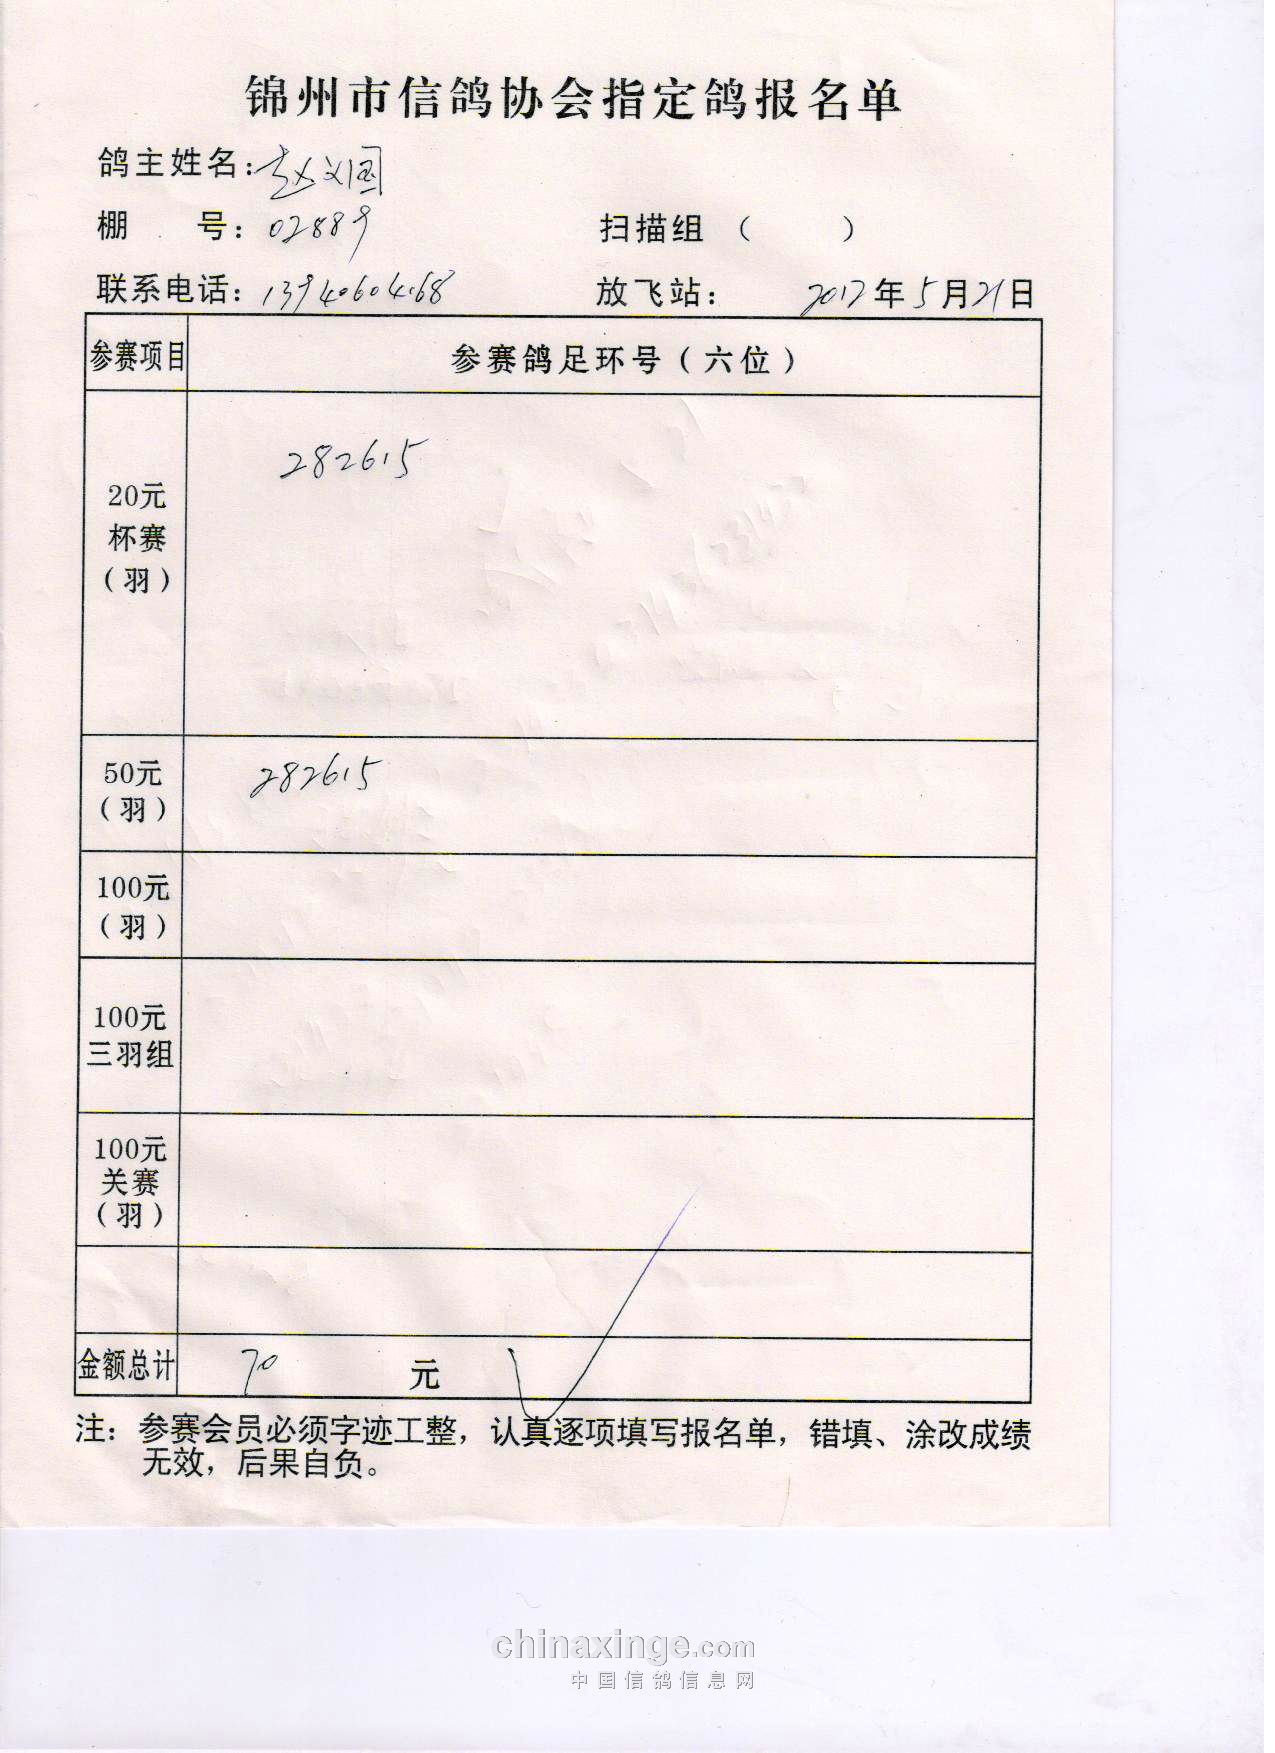 锦州市信鸽协会指定鸽报名单
鸽主姓名：赵义国
棚 号：02889 扫描组（ ）
联系电话：13940604168 放飞站： 2012年5月21日
参赛项目 参赛鸽足环号（六位）
20元
杯赛
（羽）
282615
50元
（羽）
282615
100元
（羽）
100元
三羽组
100元
关赛
（羽）
金额总计 70 元
注：参赛会员必须字迹工整，认真逐项填写报名单，错填、涂改成绩
无效，后果自负。
chinaxinge.com
中国信鸽信息网